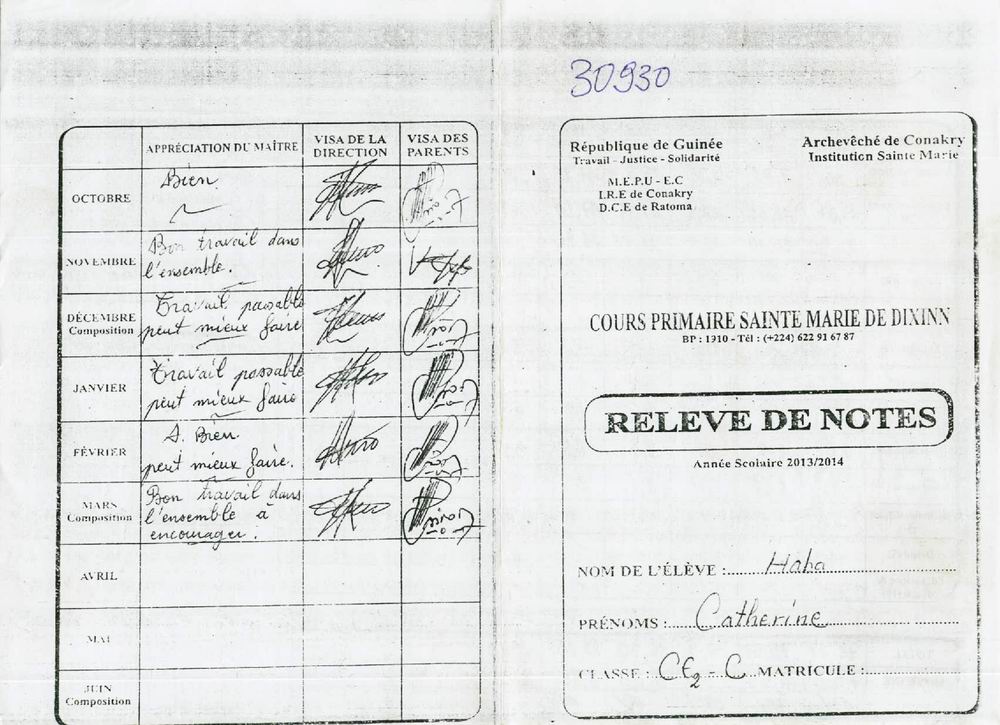 30930
APPRÉCIATION DU MAÎTRE
VISA DE LA DIRECTION
VISA DES PARENTS
OCTOBRE
Bien
NOVEMBRE
Bon travail dans
l'ensemble.
DÉCEMBRE
Composition
Travail passable
peut mieux faire
JANVIER
Travail passable
peut mieux faire
FÉVRIER
A. Bien
peut mieux faire.
MARS
Composition
Bon travail dans
l'ensemble à
encourager.
AVRIL
MAI
JUIN
Composition
République de Guinée
Travail - Justice - Solidarité
M.E.P.U - E.C
I.R.E de Conakry
D.C.E de Ratoma
Archevêché de Conakry
Institution Sainte Marie
COURS PRIMAIRE SAINTE MARIE DE DIXINN
BP : 1910 - Tél : (+224) 622 91 67 87
RELEVE DE NOTES
Année Scolaire 2013/2014
NOM DE L'ÉLÈVE : Haba
PRÉNOMS : Catherine
CLASSE : CE2 - C MATRICULE :